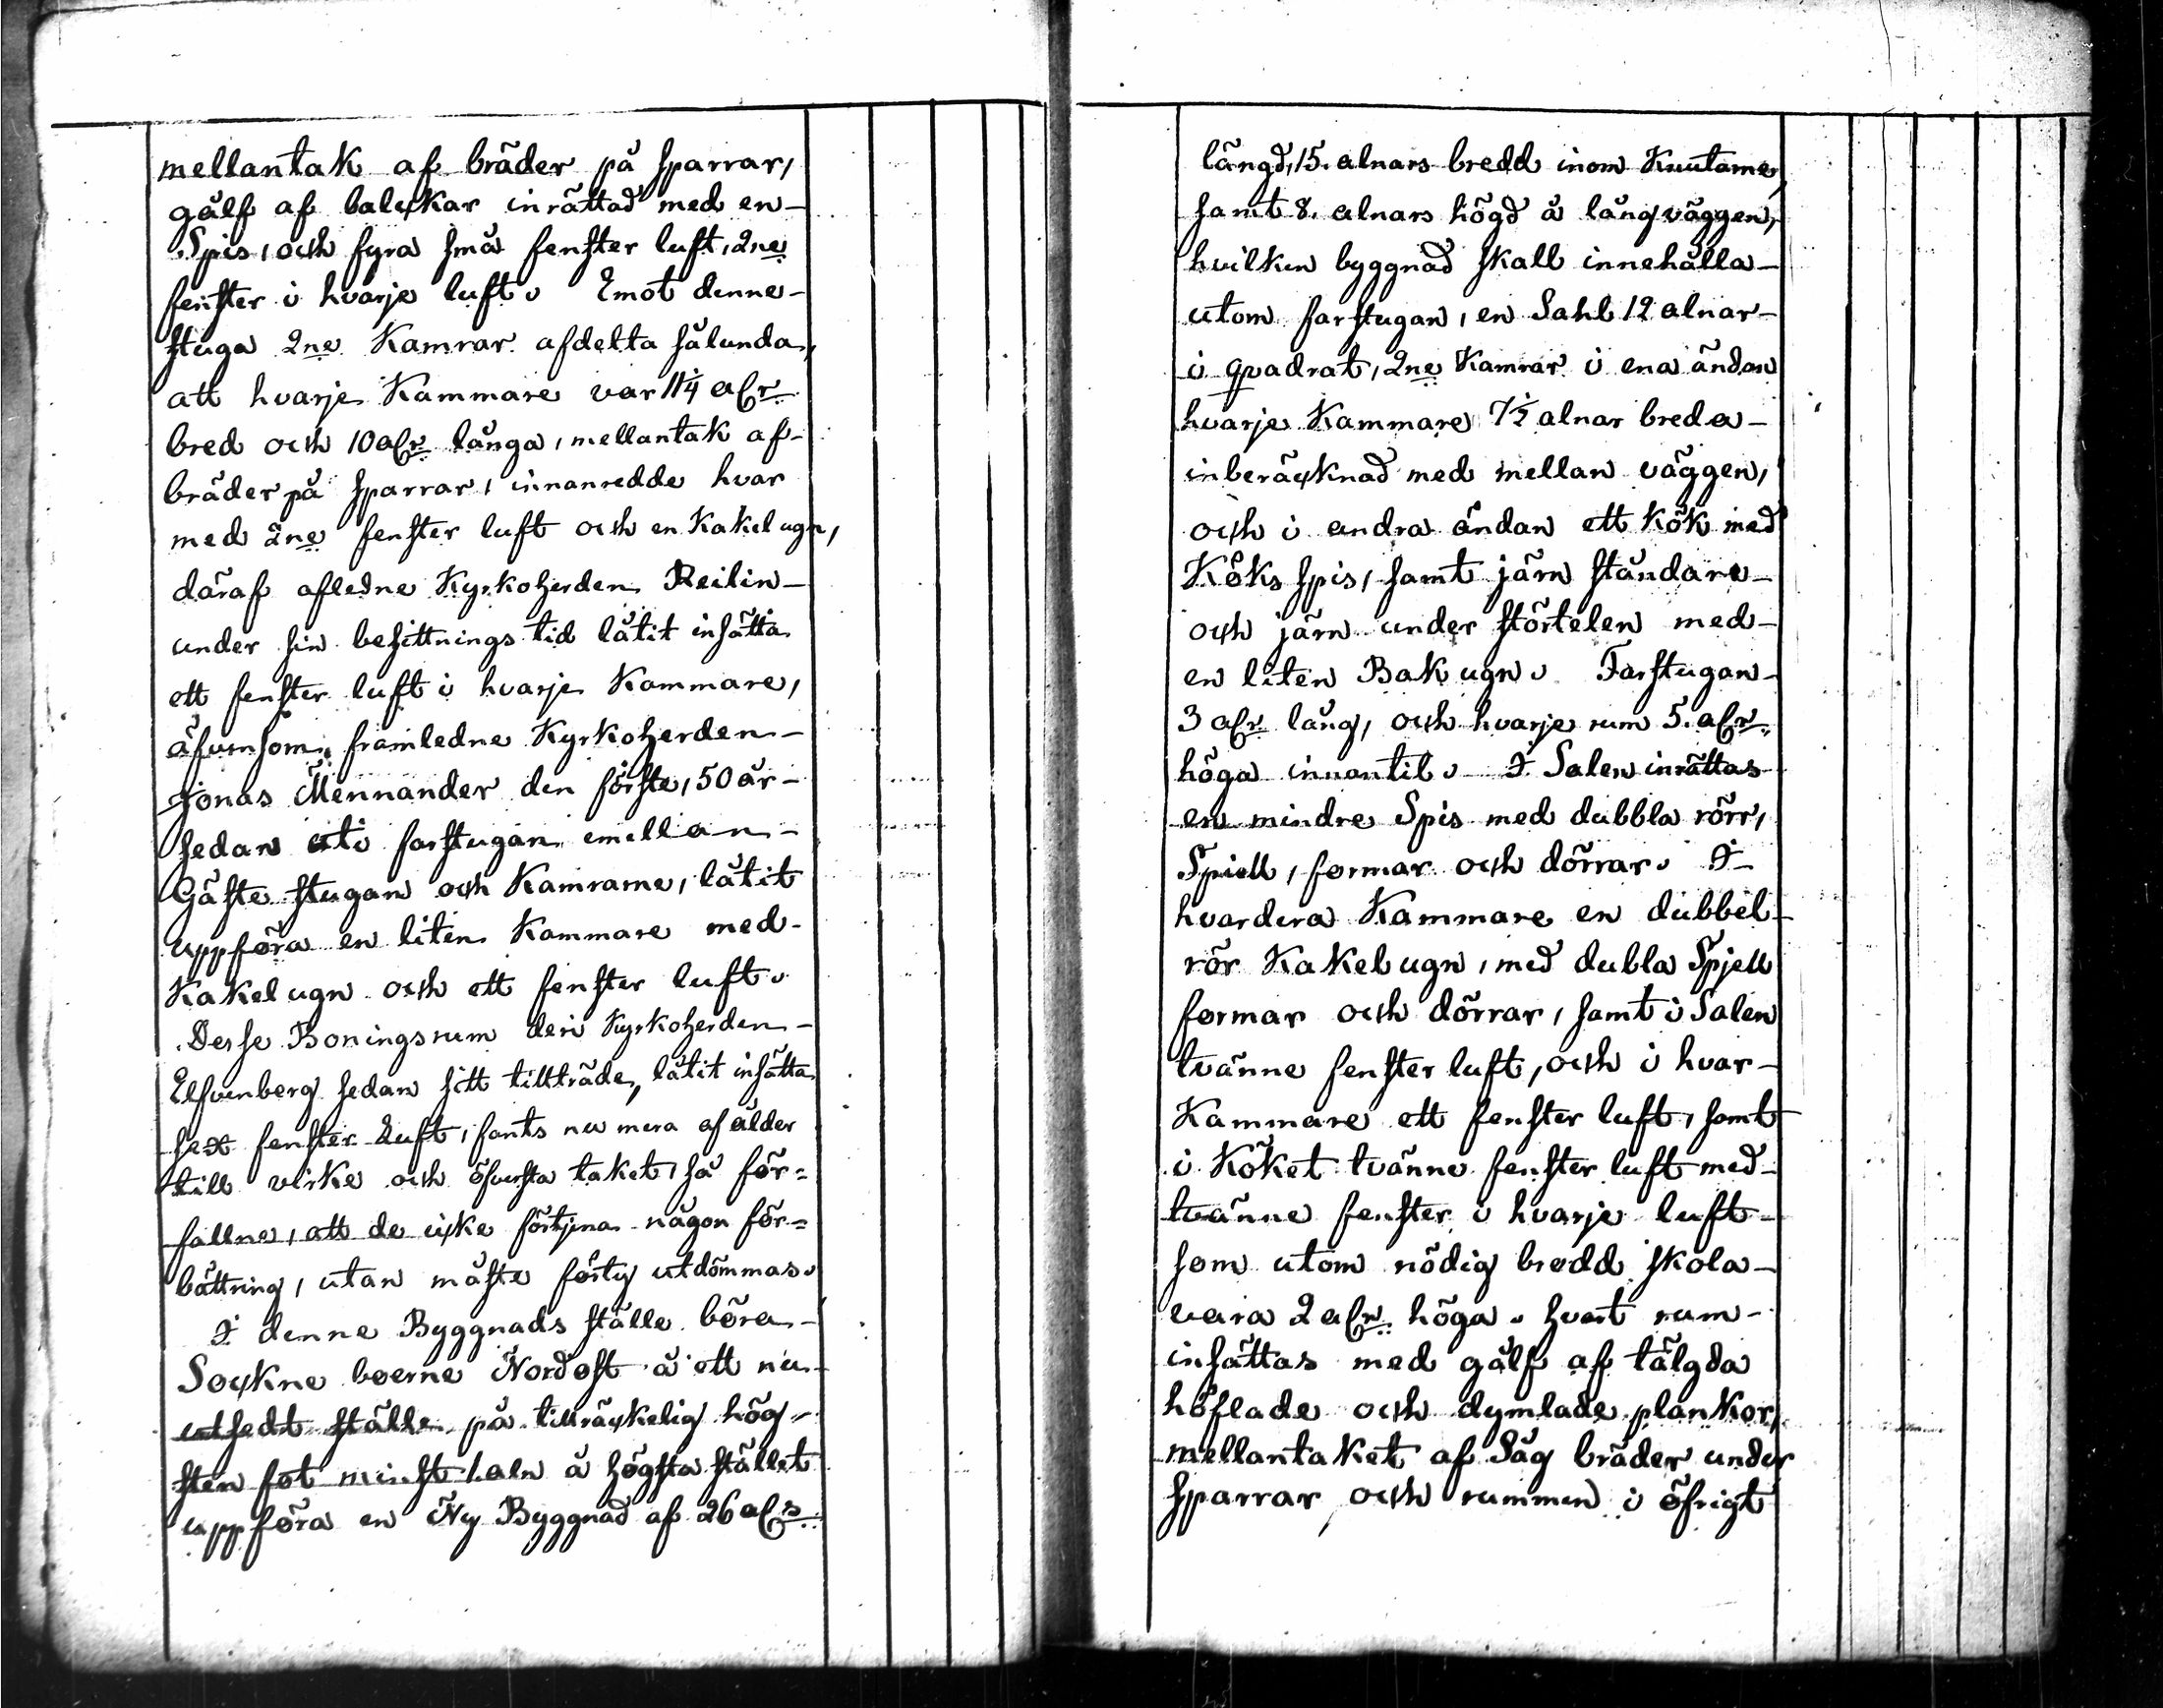 mellantak af bräder på sparrar,
gålf af balckar inrättad med en-
Spis, och fyra små fenster luft, 2ne
fenster i hvarje luft. Emot denne-
stuga 2ne Kamrar afdelta sålunda,
att hvarje Kammare var 11¼ alr
bred och 10 alr långa, mellantak af-
bräder på sparrar, innanredde hvar
med 2ne fenster luft och en Kakel ugn,
däraf afledne Kyrkoherden Reilin-
under sin besittnings tid låtit insätta
ett fenster luft i hvarje Kammare,
äfvensom framledne Kyrkoherden-
Jonas Mennander den förste, 50 år-
sedan uti farstugan emellan-
Gäste stugan och Kamrarne, låtit
uppföra en liten Kammare med-
Kakel ugn och ett fenster luft.
Desse Boningsrum deri Kyrkoherden-
Elfvenberg sedan sitt tillträde, låtit insätta
sex fenster Luft, fants nu mera af ålder
till virke och öfversta taket, så för=
fallne, att de icke förtjena någon för=
bättring, utan måste förty utdömmas.
I denne Byggnads ställe böra-
Sockne boerne Nordost å ett nu-
utsedt ställe på tillräckelig hög-
sten fot minst 1. aln å högsta stället
uppföra en Ny Byggnad af 26 alrs
längd, 15. alnars bredd inom Knutarne,
samt 8. alnars högd å långväggen,
hvilken byggnad skall innehålla-
utom farstugan, en Sahl 12 alnar-
i qvadrat, 2ne Kamrar i ena ändan
hvarje Kammare 7½ alnar breda-
inberäcknad med mellan väggen,
och i andra ändan ett kök med
Köks spis, samt järn ståndare-
och järn under störtelen med-
en liten Bak ugn. Farstugan-
3 alr lång, och hvarje rum 5. alr
höga innantil. I Salen inrättas
en mindre Spis med dubbla rörr,
Spiell, formar och dörrar. I-
hvardera Kammare en dubbel-
rör Kakel ugn, med dubla Spjell
formar och dörrar, samt i Salen
tvänne fenster luft, och i hvar-
Kammare ett fenster luft, samt
i Köket tvänne fenster luft med-
tvänne fenster i hvarje luft-
som utom nödig bredd skola-
vara 2 alr höga. hvart rum-
insättas med gålf af tälgda
höflade och dymlade plankor,
mellantaket af Såg bräder under
sparrar och rummen i öfrigt